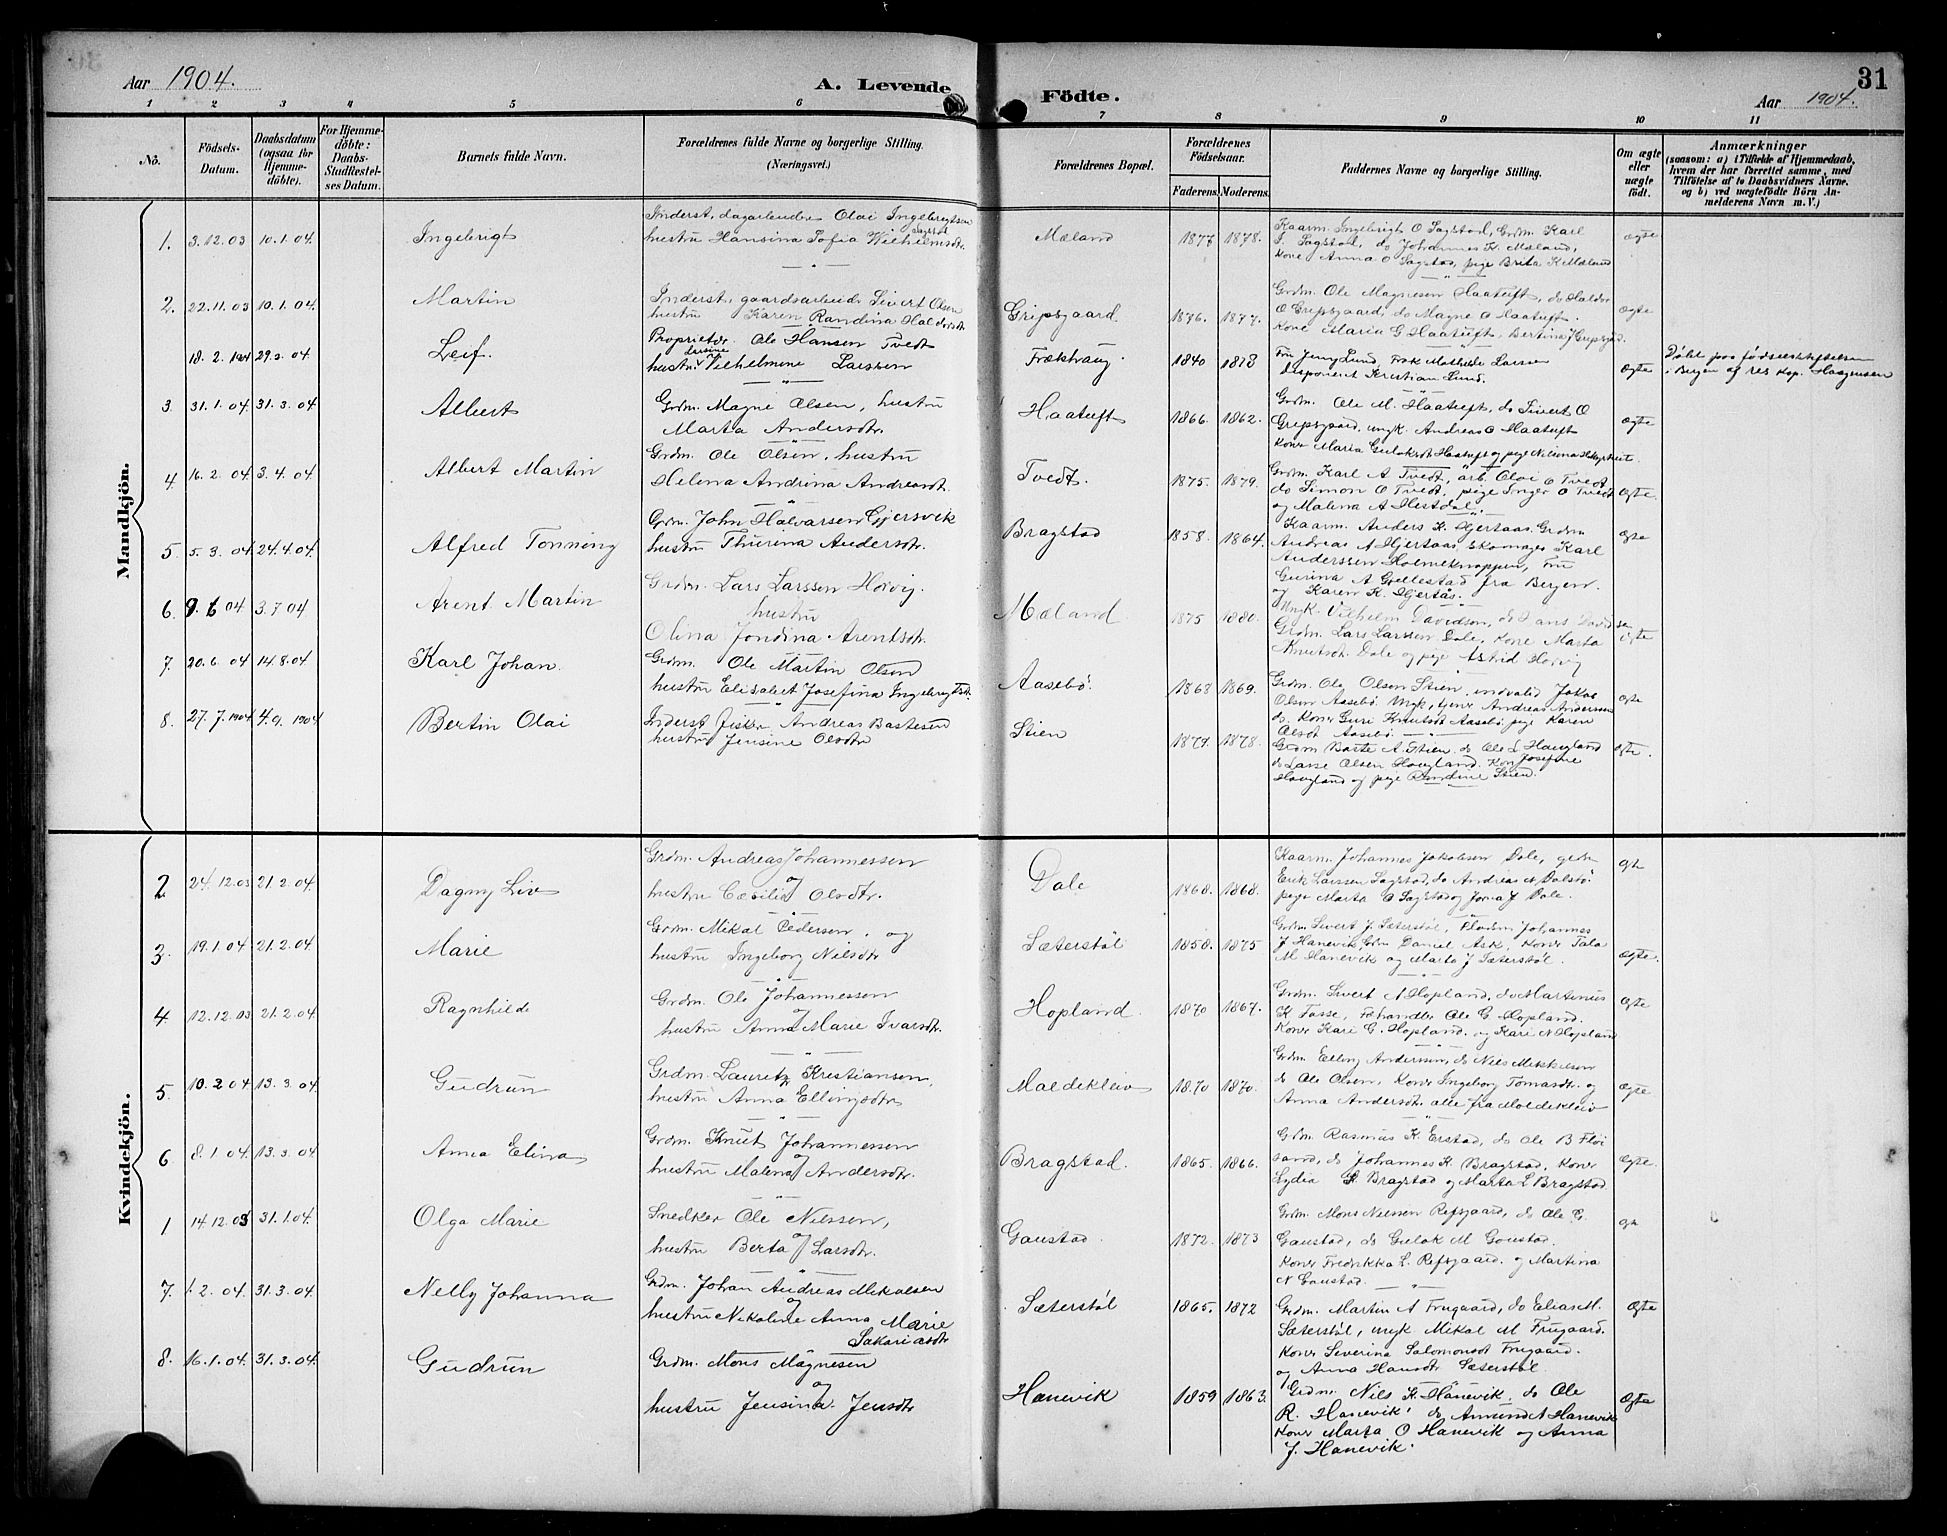 Aar 1904.
A. Levende
Födte.
31
Aar 1904.
1 2 3 4 5 6 7 8 9 10 11
No.
Födsels-Datum.
Daabsdatum (ogsaa for Hjemme-döbte).
For Hjemme-döbte: Daabs-Stadfæstel-ses Datum.
Barnets fulde Navn.
Forældrenes fulde Navne og borgerlige Stilling.
(Næringsvei.)
Forældrenes Bopæl.
Forældrenes Födselsaar.
Faderens. Moderens.
Faddernes Navne og borgerlige Stilling.
Om ægte eller uægte födt.
Anmærkninger
(saasom: a) i Tilfælde af Hjemmedaab, hvem der har forrettet samme, med Tilföielse af to Daabsvidners Navne, og b) ved uægtefödte Börn Anmelderens Navn m. V.)
Mandkjön.
1. 3.12.03 10.1.04. Ingebrigt
Inderst, dagarbeider Olai Ingebrigtsen Sagstad
hustru Hansina Sofia Wilhelmsdtr.
Mæland 1877 1878.
Kaarm. Ingebrigt O Sagstad, Grdm. Karl
I. Sagstad, do Johannes K. Mæland,
Kone Anna O Sagstad, pige Brita K Mæland
ægte
2. 22.11.03 10.1.04. Martin
Inderst, gaardsarbeider Sivert Olsen
hustru Karen Randina Haldorsdtr
Gripsgaard. 1876. 1877.
Grdm. Ole Magnesen Haatuft, do Haldor
O Gripsgaard, do Magne O Haatuft.
Kone Maria G Haatuft, Bertina J Gripsgrd.
ægte
18.2.1904 29.3.04. Leif.
Proprietær Ole Hansen Tvedt
hustru Lovise Vilhelmine Larssen
Frækhaug. 1840 1873
Fru Jenny Lund, Frøk Mathilde Larsen
disponent Kristian Lund.
ægte
Døbt paa fødselsstiftelsen
i Bergen og res kap. Haagensen
3. 31.1.04. 31.3.04. Albert
Grdm. Magne Olsen, hustru
Marta Andersdtr.
Haatuft 1866. 1862.
Grdm. Ole M. Haatuft, do Sivert O
Gripsgaard, ungk. Andreas O Haatuft
ægte
4. 16.2.04. 3.4.04. Albert Martin
Grdm. Ole Olsen, hustru
Helena Andrina Andreasdtr.
Tvedt. 1875. 1879.
Grdm. Karl A Tvedt, arb. Olai O Tvedt
do Simon O Tvedt, pige Inger O Tvedt
og Malena A Hestdal.
ægte.
5. 5.3.04. 24.4.04. Alfred Tonning
Grdm. John Halvarsen Gjersvik
hustru Thurina Andersdtr.
Bragstad 1858. 1864.
Kaarm. Anders K. Hjertaas. Grdm
Andreas A Hjertaas, Skomager Karl
Anderssen Holmeknappen, Fru
Gurina A Gjellestad fra Bergen.
og Karen K. Hjertås.
ægte
6. 9.6.04 3.7.04 Arent Martin
Grdm. Lars Larssen Horvig.
hustru
Olina Jondina Arentsdtr.
Mæland 1875 1880.
Ungk. Vilhelm Davidson, do Hans Davidsen
Grdm. Lars Larssen Dale, Kone Marta
Knutsdt. Dale og pige Astrid Horvig
ægte
7. 20.6.04 14.8.04 Karl Johan.
Grdm. Ole Martin Olsen
hustru Elisabet Josefina Ingebrigtsdtr.
Aasebø. 1868 1869.
Grdm. Ole Olson Stien, indvalid Jakob
Olson Aasebø Ungk, tjener Andreas Andersen
do. Koner Guri Knutsdt Aasebø pige Karen
Olsdt Aasebø.
ægte
8. 27.7.1904 4.9.1904 Bertin Olai
Inderst Fisker Andreas Bastesen
hustru Jensine Olsdtr
Stien 1877. 1878.
Grdm Baste A. Stien, do Ole L Haugland
do Lasse Olsen Hougland. Kon Josefine
Hougland og pige Randine Stien.
ægte.
Kvindekjön.
2 24.12.03 21.2.04. Dagny Liv
Grdm. Andreas Johannessen
og
hustru Cæsilia Olsdtr.
Dale 1868. 1868.
Kaarm. Johannes Jakobsen Dale, grdm
Erik Larssen Sagstad, do Andreas N Dalstø.
pige Marta O Sagstad og Jona J Dale.
ægte
3. 19.1.04 21.2.04. Marie
Grdm. Mikal Pedersen. og
hustru Ingeborg Nilsdtr
Sæterstøl 1858. 1875
Grdm Sivert J. Sæterstøl, Johannes
J Hanevik, Grdm Daniel Ask, Koner Tala
M Hanevik og Marta J Sæterstøl.
ægte.
4. 12.12.03 21.2.04. Ragnhilde
Grdm. Ole Johannessen
og
hustru Anna Marie Ivarsdtr.
Hopland. 1870 1867.
Grdm. Sivert N Hopland, do Martinus
K Fosse, Fehandler Ole G Hopland.
Koner Kari G. Hopland. og Kari N Hopland
ægte
5. 10.2.04 13.3.04 Gudrun
Grdm. Lauritz Kristiansen,
hustru Anna Ellingsdtr
Moldekleiv 1870 1870.
Grdm Elling Anderssen, do Nils Mikkelsen
do Ole Olsen, Koner Ingeborg Tomasdtr. og
Anna Andersdtr. alle fra Moldekleiv
ægte
6 8.1.04. 13.3.04 Anna Elina
Grdm. Knut Johannessen
og
hustru Malena Andersdtr.
Bragstad. 1865. 1866.
Grdm. Rasmus K. Erstad, do Ole B Fløi
sand, do Johannes K. Bragstad. Koner
Lydia K. Bragstad og Marta L Bragstad.
ægte.
1 14.12.03 31.1.04. Olga Marie
Snedker Ole Nilssen,
og
hustru Berta Larsdtr.
Gaustad. 1872. 1873
Grdm. Mons Nilssen Refsgaard, do Ole G.
Gaustad, do Gulak M Goustad.
Koner Fredrikka L. Refsgaard. og Martina
N Goustad.
ægte
7. 1.2.04. 31.3.04. Nelly Johanna
Grdm. Johan Andreas Mikalsen
og
hustru Nikoline Anna Marie
Sakariasdtr
Sæterstøl 1865. 1872
Grdm. Martin A Frugaard, do Elias M.
Sæterstøl, ungk Mikal M Frugaard.
Koner Severina Salomonsdt Frugaard.
og Anna Hansdtr Sæterstøl
Ægte
8. 16.1.04. 31.3.04. Gudrun
Grdm. Mons Magnesen
og
hustru Jensina Jensdtr
Hanevik 1859 1863.
Grdm. Nils K. Hanevik. do Ole
R. Hanevik, do Amund A Hanevik
Koner Marta O Hanevik og Anna
J. Hanevik.
Ægte